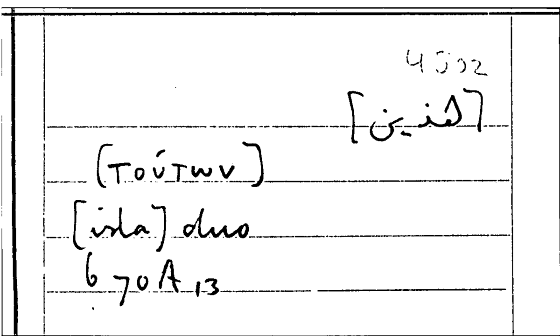 [هذين]
(τούτων)
[ista] duo
670A 13